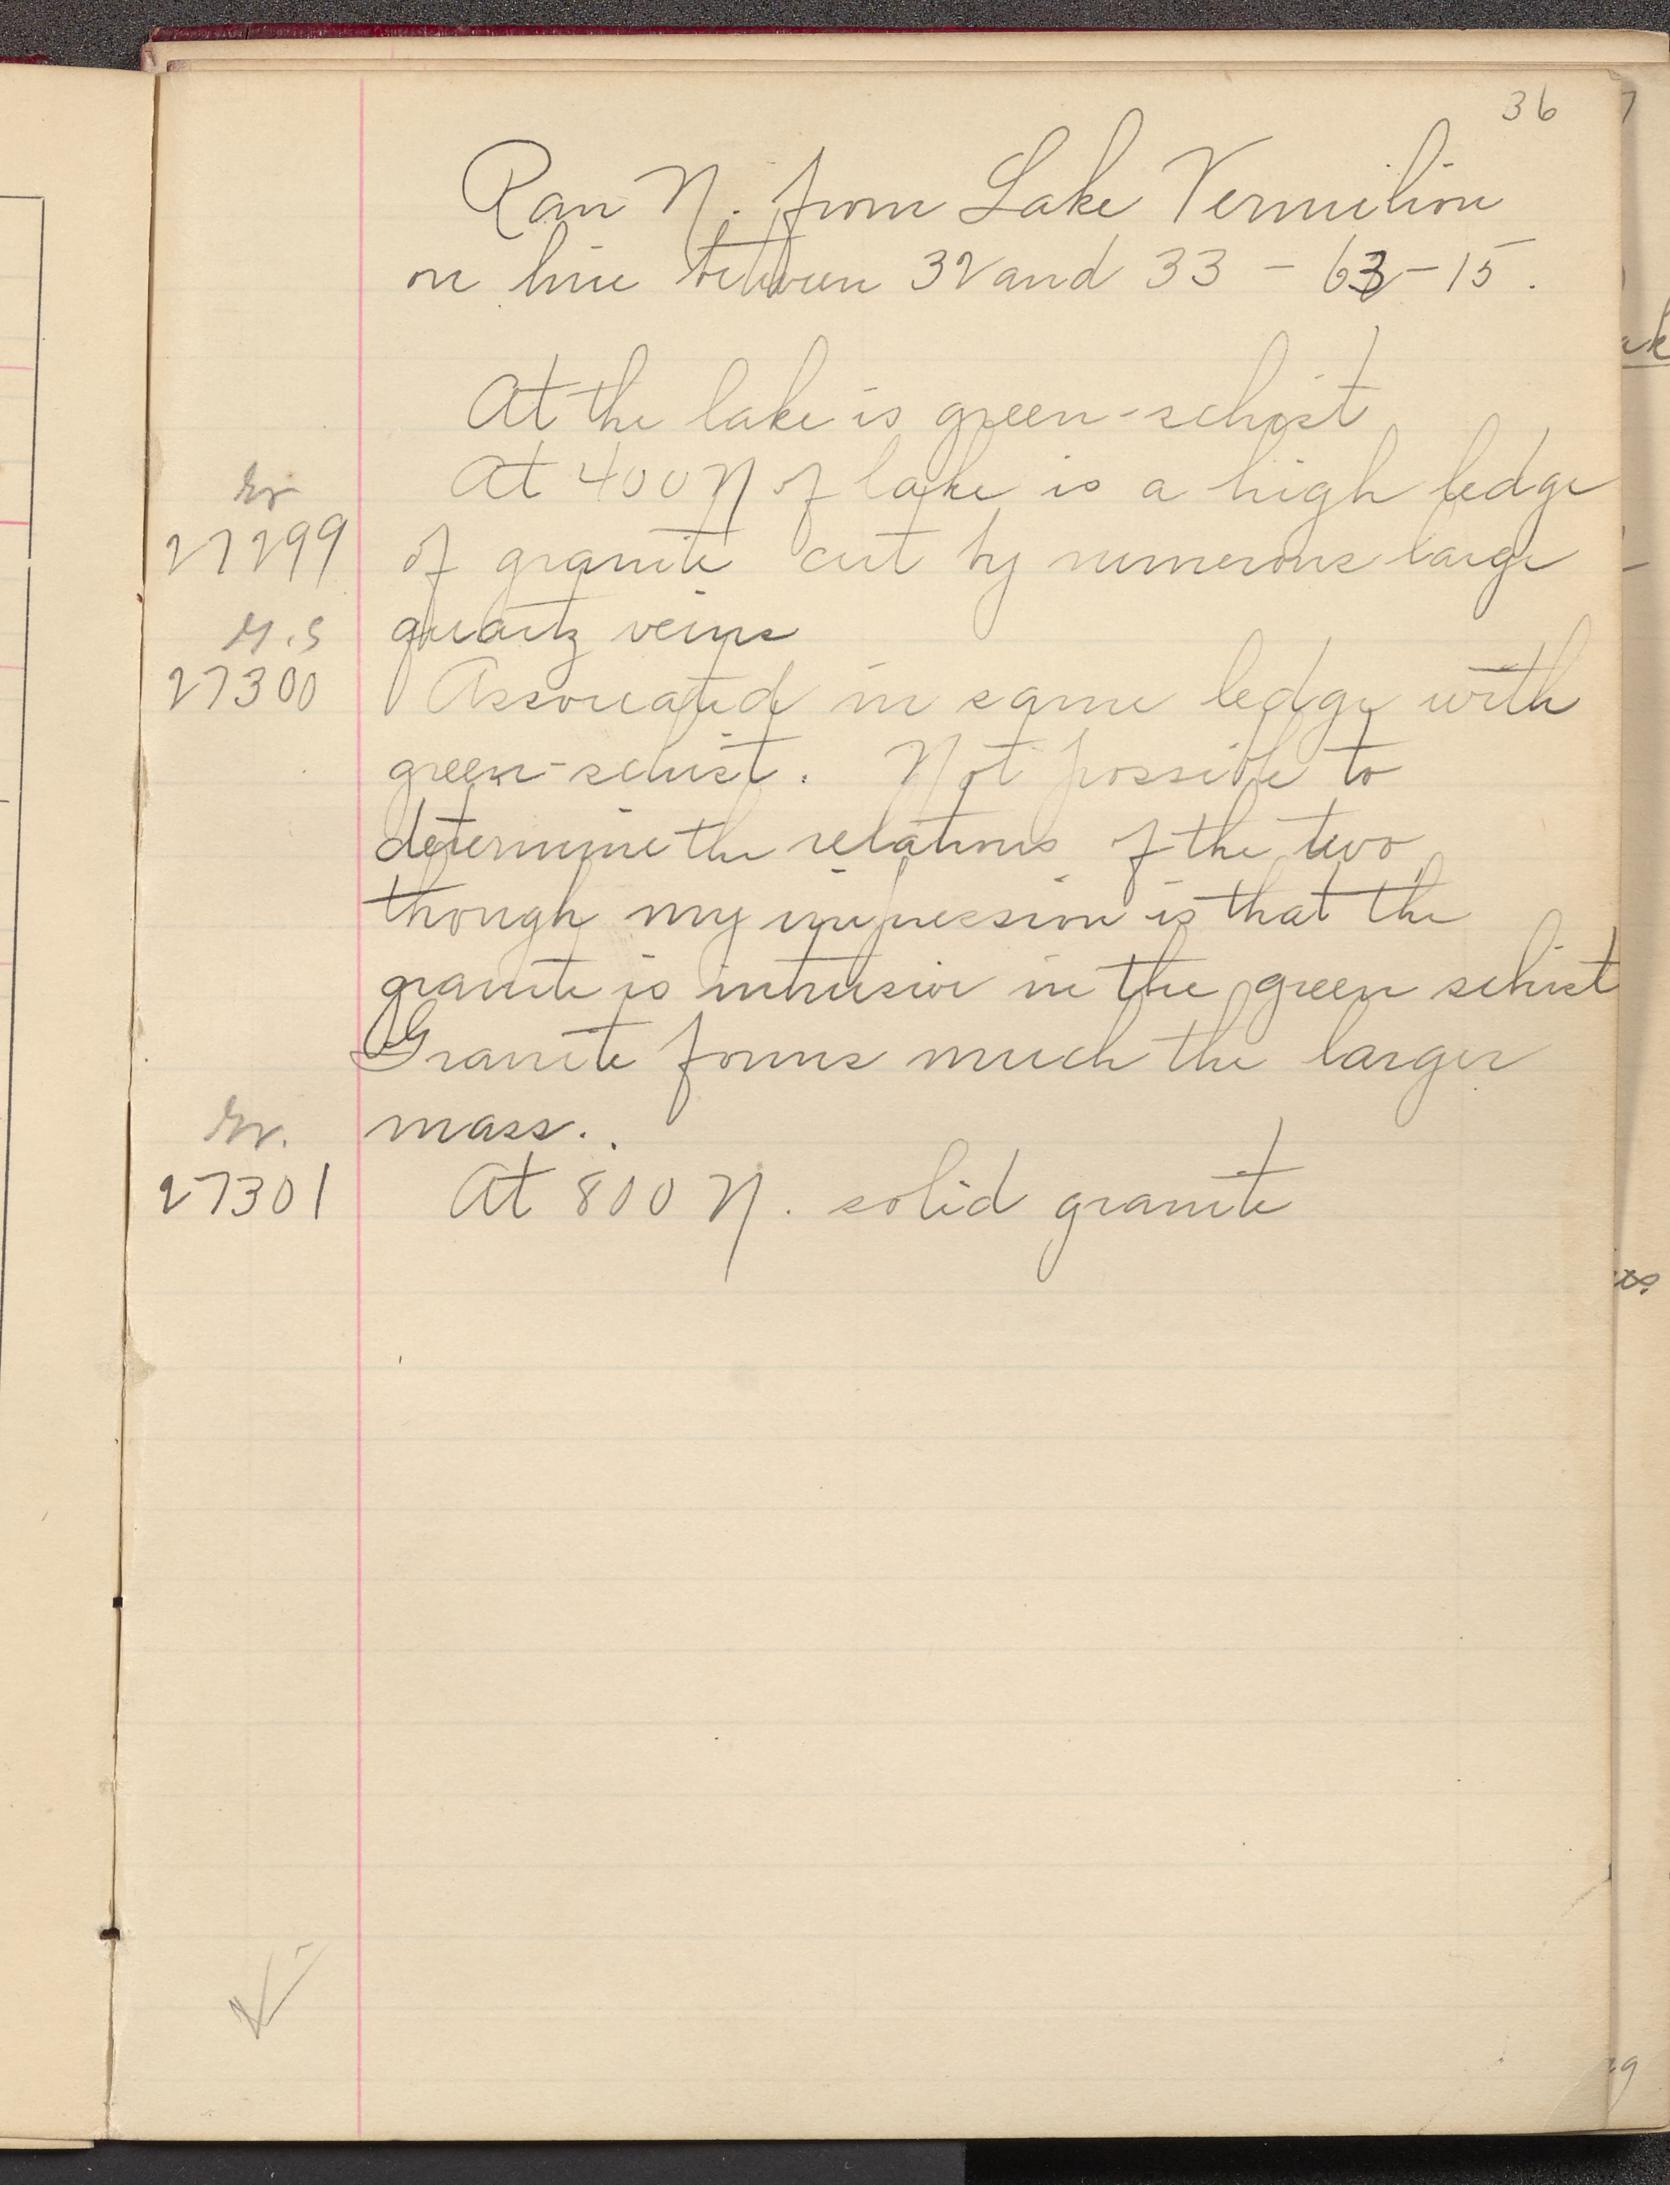 36
Ran N. from Lake Vermilion
on line between 32 and 33 - 63 - 15.
At the lake is green-schist
At 400 N of lake is a high ledge
Gr
27299 of granite cut by numerous large
G.S quartz veins
27300 Associated in same ledge with
green-schist. Not possible to
determine the relations of the two
though my impression is that the
granite is intrusive in the green schist
Granite forms much the larger
Gr. mass.
27301 At 800 N. solid granite